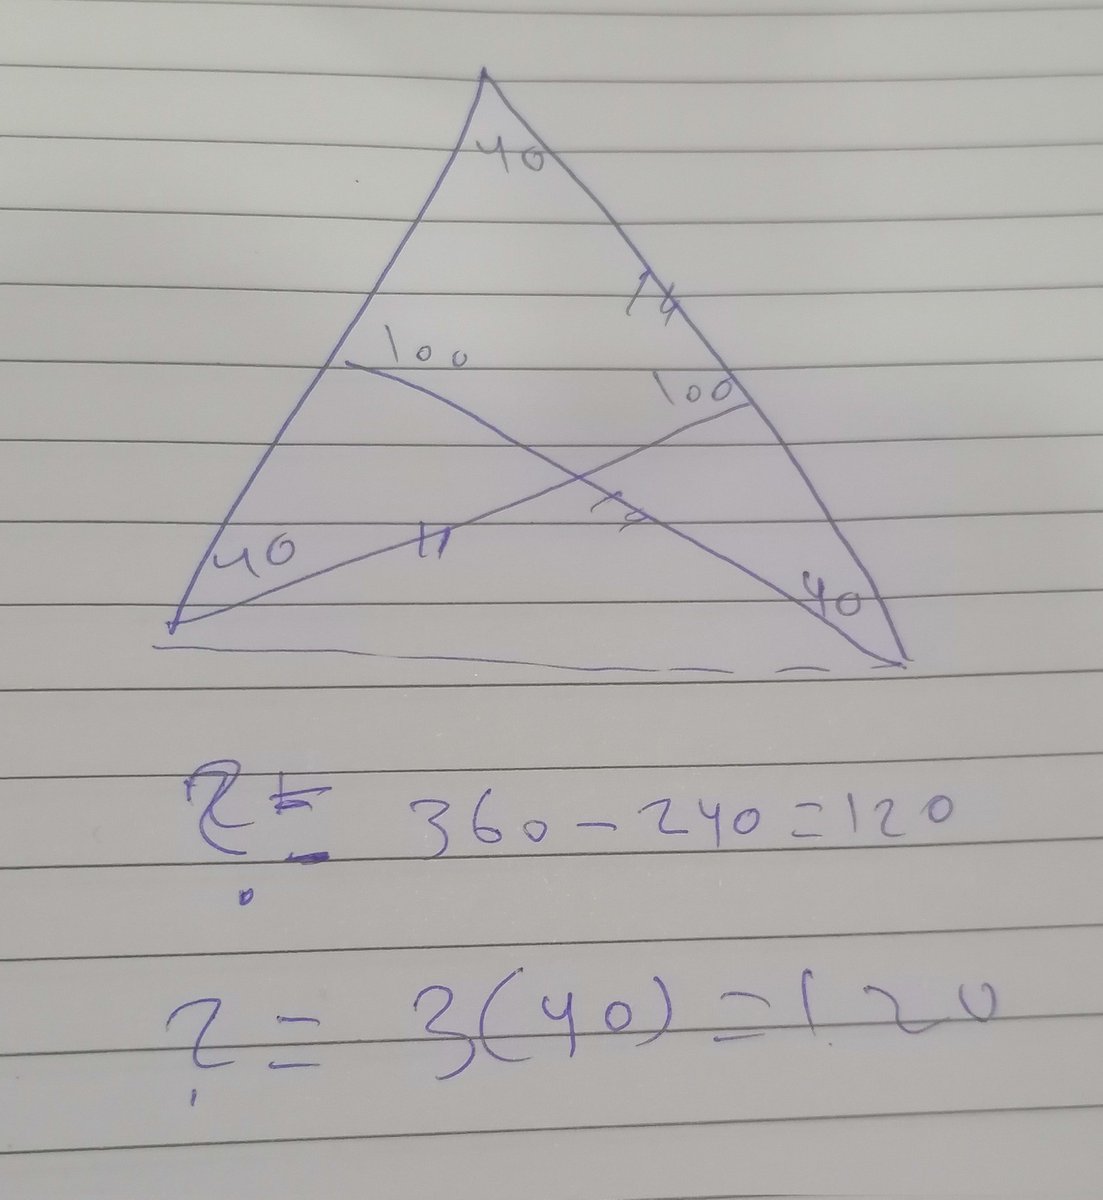 40
100
100
40
40
? = 360 - 240 = 120
? = 3(40) = 120